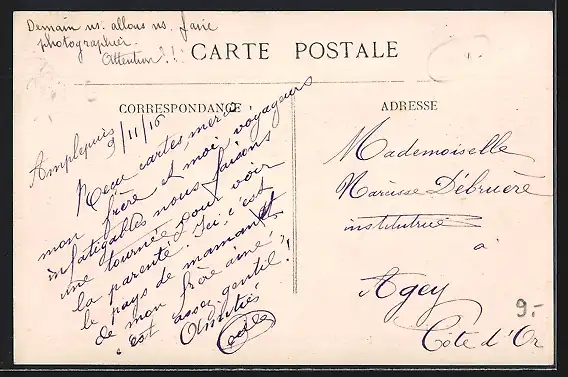 Demain ns. allons ns. faire
photographier.
Attention!!
CARTE POSTALE
CORRESPONDANCE
ADRESSE
Amplepuis
9/11/10
Reçu cartes, merci,
mon frère et moi, voyageurs
infatigables nous faisons
une tournée pour voir
la parenté. Ici c'est
le pays de maman et
de mon frère aimé,
c'est assez gentil!
Amitiés
Mademoiselle
Narcisse Débruère
institutrice
à
Agey
Côte d'Or
9.-